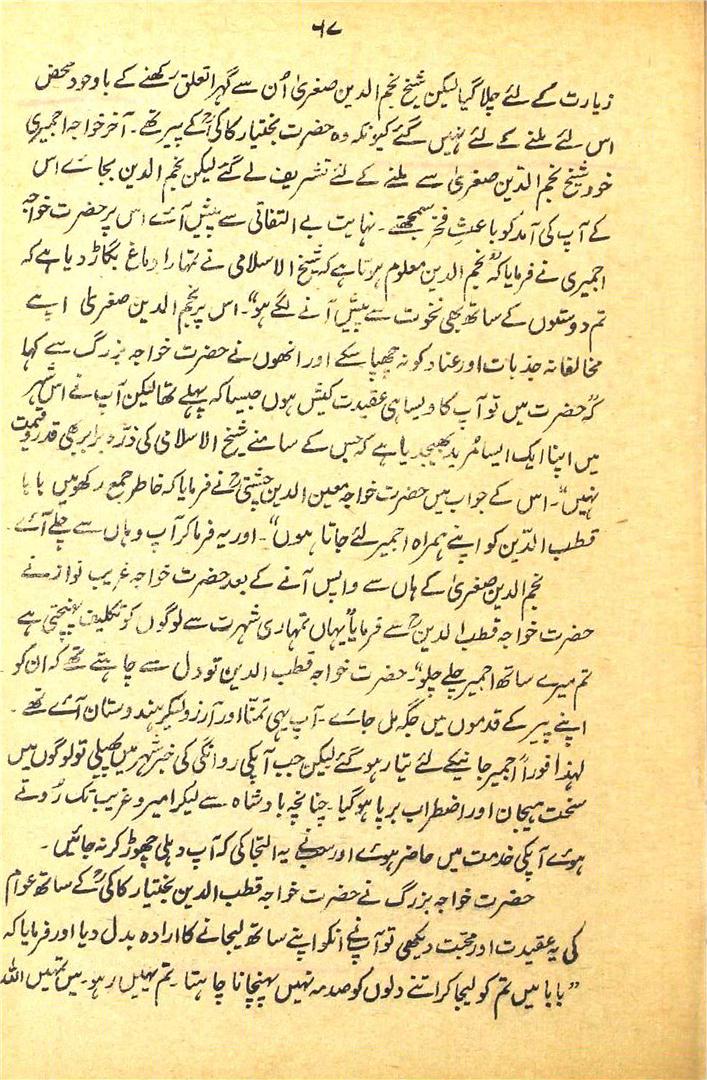 ۶۷
زیارت کے لئے چلا گیا لیکن شیخ نجم الدین صغریٰ اُن سے گہرا تعلق رکھنے کے باوجود محض
اس لئے ملنے کے لئے نہیں گئے کیونکہ وہ حضرت بختیار کاکیؒ کے پیر تھے۔ آخر خواجہ اجمیری
خود شیخ نجم الدّین صغریٰ سے ملنے کے لئے تشریف لے گئے لیکن نجم الدین بجائے اس
کے آپ کی آمد کو باعثِ فخر سمجھتے۔ نہایت بے التفاتی سے پیش آئے اس پر حضرت خواجہ
اجمیری نے فرمایا کہ ”نجم الدین معلوم ہوتا ہے کہ شیخ الاسلامی نے تمہارا دماغ بگاڑ دیا ہے کہ
تم دوستوں کے ساتھ بھی نخوت سے پیش آنے لگے ہو“۔ اس پر نجم الدین صغریٰ اپنے
مخالفانہ جذبات اور عناد کو نہ چھپا سکے اور انھوں نے حضرت خواجہ بزرگ سے کہا
کہ ”حضرت میں تو آپ کا ویسا ہی عقیدت کیش ہوں جیسا کہ پہلے تھا لیکن آپ نے اس شہر
میں اپنا ایک ایسا مُرید بھیجدیا ہے کہ جس کے سامنے شیخ الاسلامی کی ذرّہ برابر بھی قدر و قیمت
نہیں“۔ اس کے جواب میں حضرت خواجہ معین الدین چشتیؒ نے فرمایا کہ خاطر جمع رکھو میں بابا
قطب الدّین کو اپنے ہمراہ اجمیر لئے جاتا ہوں“۔ اور یہ فرما کر آپ وہاں سے چلے آئے۔
نجم الدین صغریٰ کے ہاں سے واپس آنے کے بعد حضرت خواجہ غریب نواز نے
حضرت خواجہ قطب الدینؒ سے فرمایا ”یہاں تمہاری شہرت سے لوگوں کو تکلیف پہنچتی ہے
تم میرے ساتھ اجمیر چلے چلو“۔ حضرت خواجہ قطب الدین تو دل سے چاہتے تھے کہ ان کو
اپنے پیر کے قدموں میں جگہ مل جائے۔ آپ یہی تمنّا اور آرزو لیکر ہندوستان آئے تھے۔
لہذا فوراً اجمیر جانیکے لئے تیار ہو گئے لیکن جب آپکی روانگی کی خبر شہر میں پھیلی تو لوگوں میں
سخت ہیجان اور اضطراب برپا ہو گیا۔ چنانچہ بادشاہ سے لیکر امیر و غریب تک روتے
ہوئے آپکی خدمت میں حاضر ہوئے اور سبنے یہ التجا کی کہ آپ دہلی چھوڑ کر نہ جائیں۔
حضرت خواجہ بزرگ نے حضرت خواجہ قطب الدین بختیار کاکیؒ کے ساتھ عوام
کی یہ عقیدت اور محبت دیکھی تو آپنے انکو اپنے ساتھ لیجانے کا ارادہ بدل دیا اور فرمایا کہ
”بابا میں تم کو لیجا کر اتنے دلوں کو صدمہ نہیں پہنچانا چاہتا۔ تم یہیں رہو۔ میں تمہیں اللہ